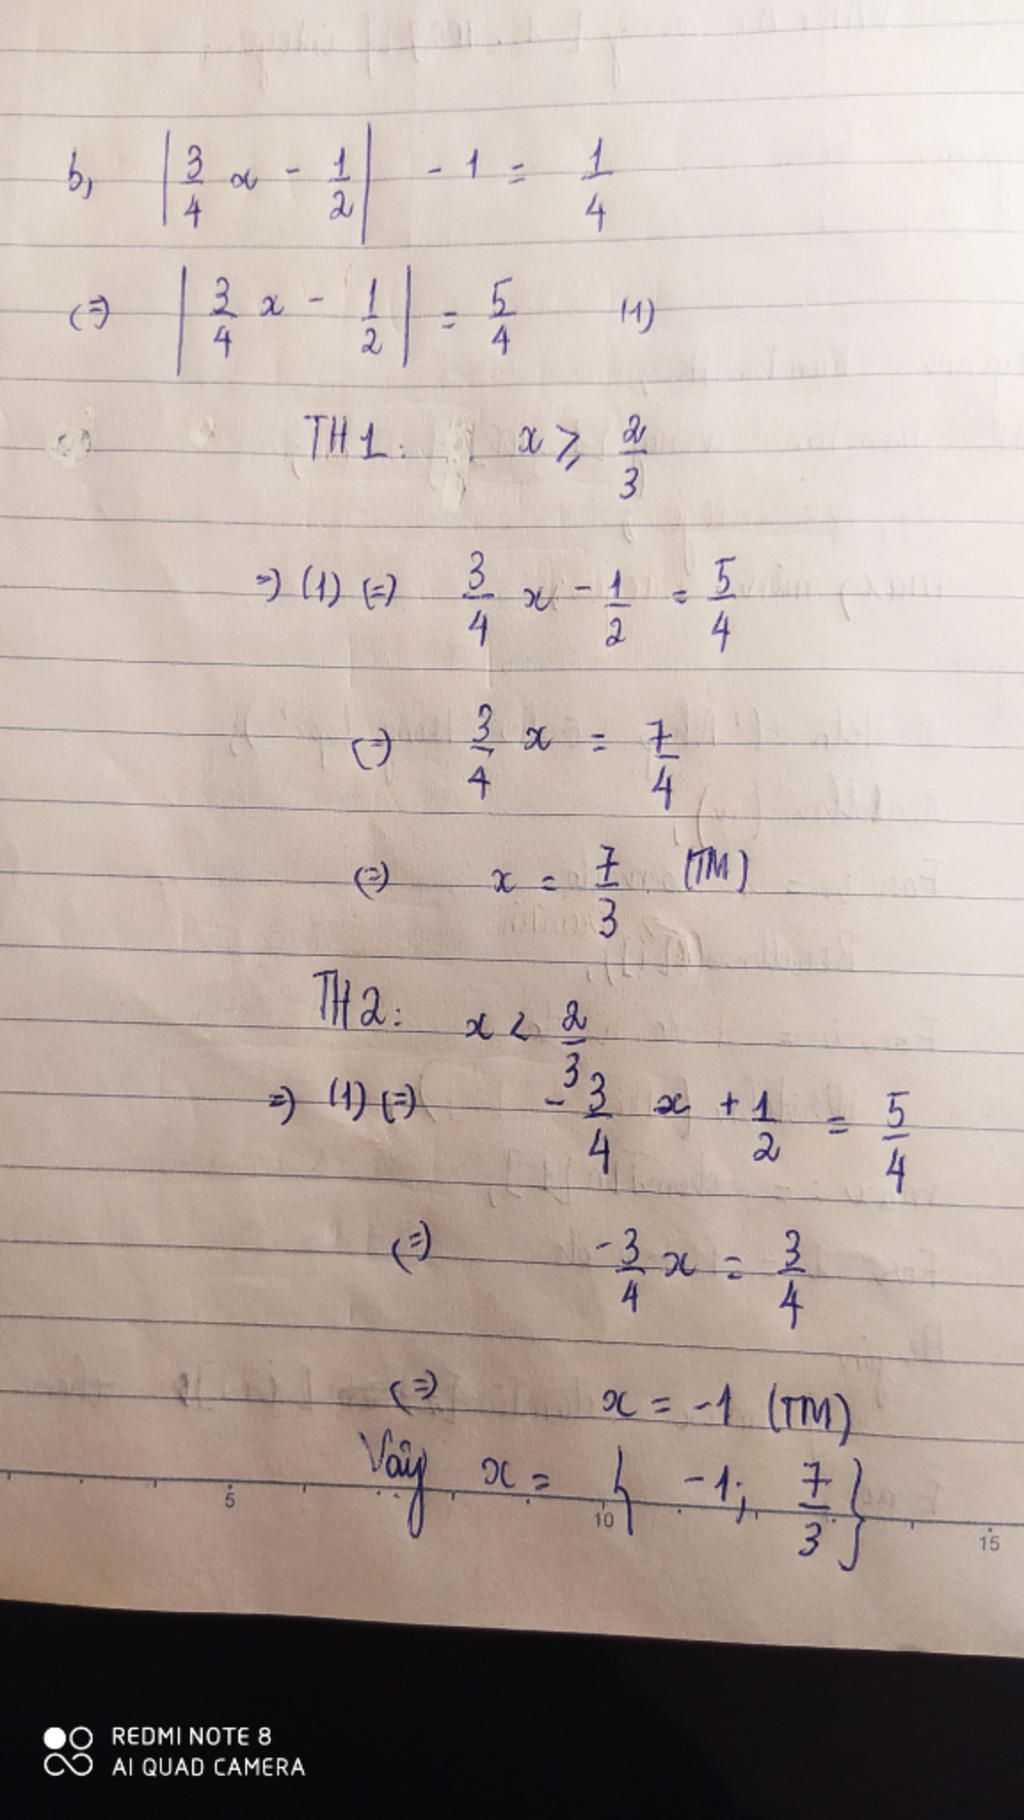 b, |3/4 x - 1/2| - 1 = 1/4
(=) |3/4 x - 1/2| = 5/4 (1)
TH1: x ≥ 2/3
=) (1) (=) 3/4 x - 1/2 = 5/4
(=) 3/4 x = 7/4
(=) x = 7/3 (TM)
TH2: x < 2/3
=) (1) (=) -3/4 x + 1/2 = 5/4
(=) -3/4 x = 3/4
(=) x = -1 (TM)
Vậy x = { -1; 7/3 }
5 10 15
REDMI NOTE 8
AI QUAD CAMERA